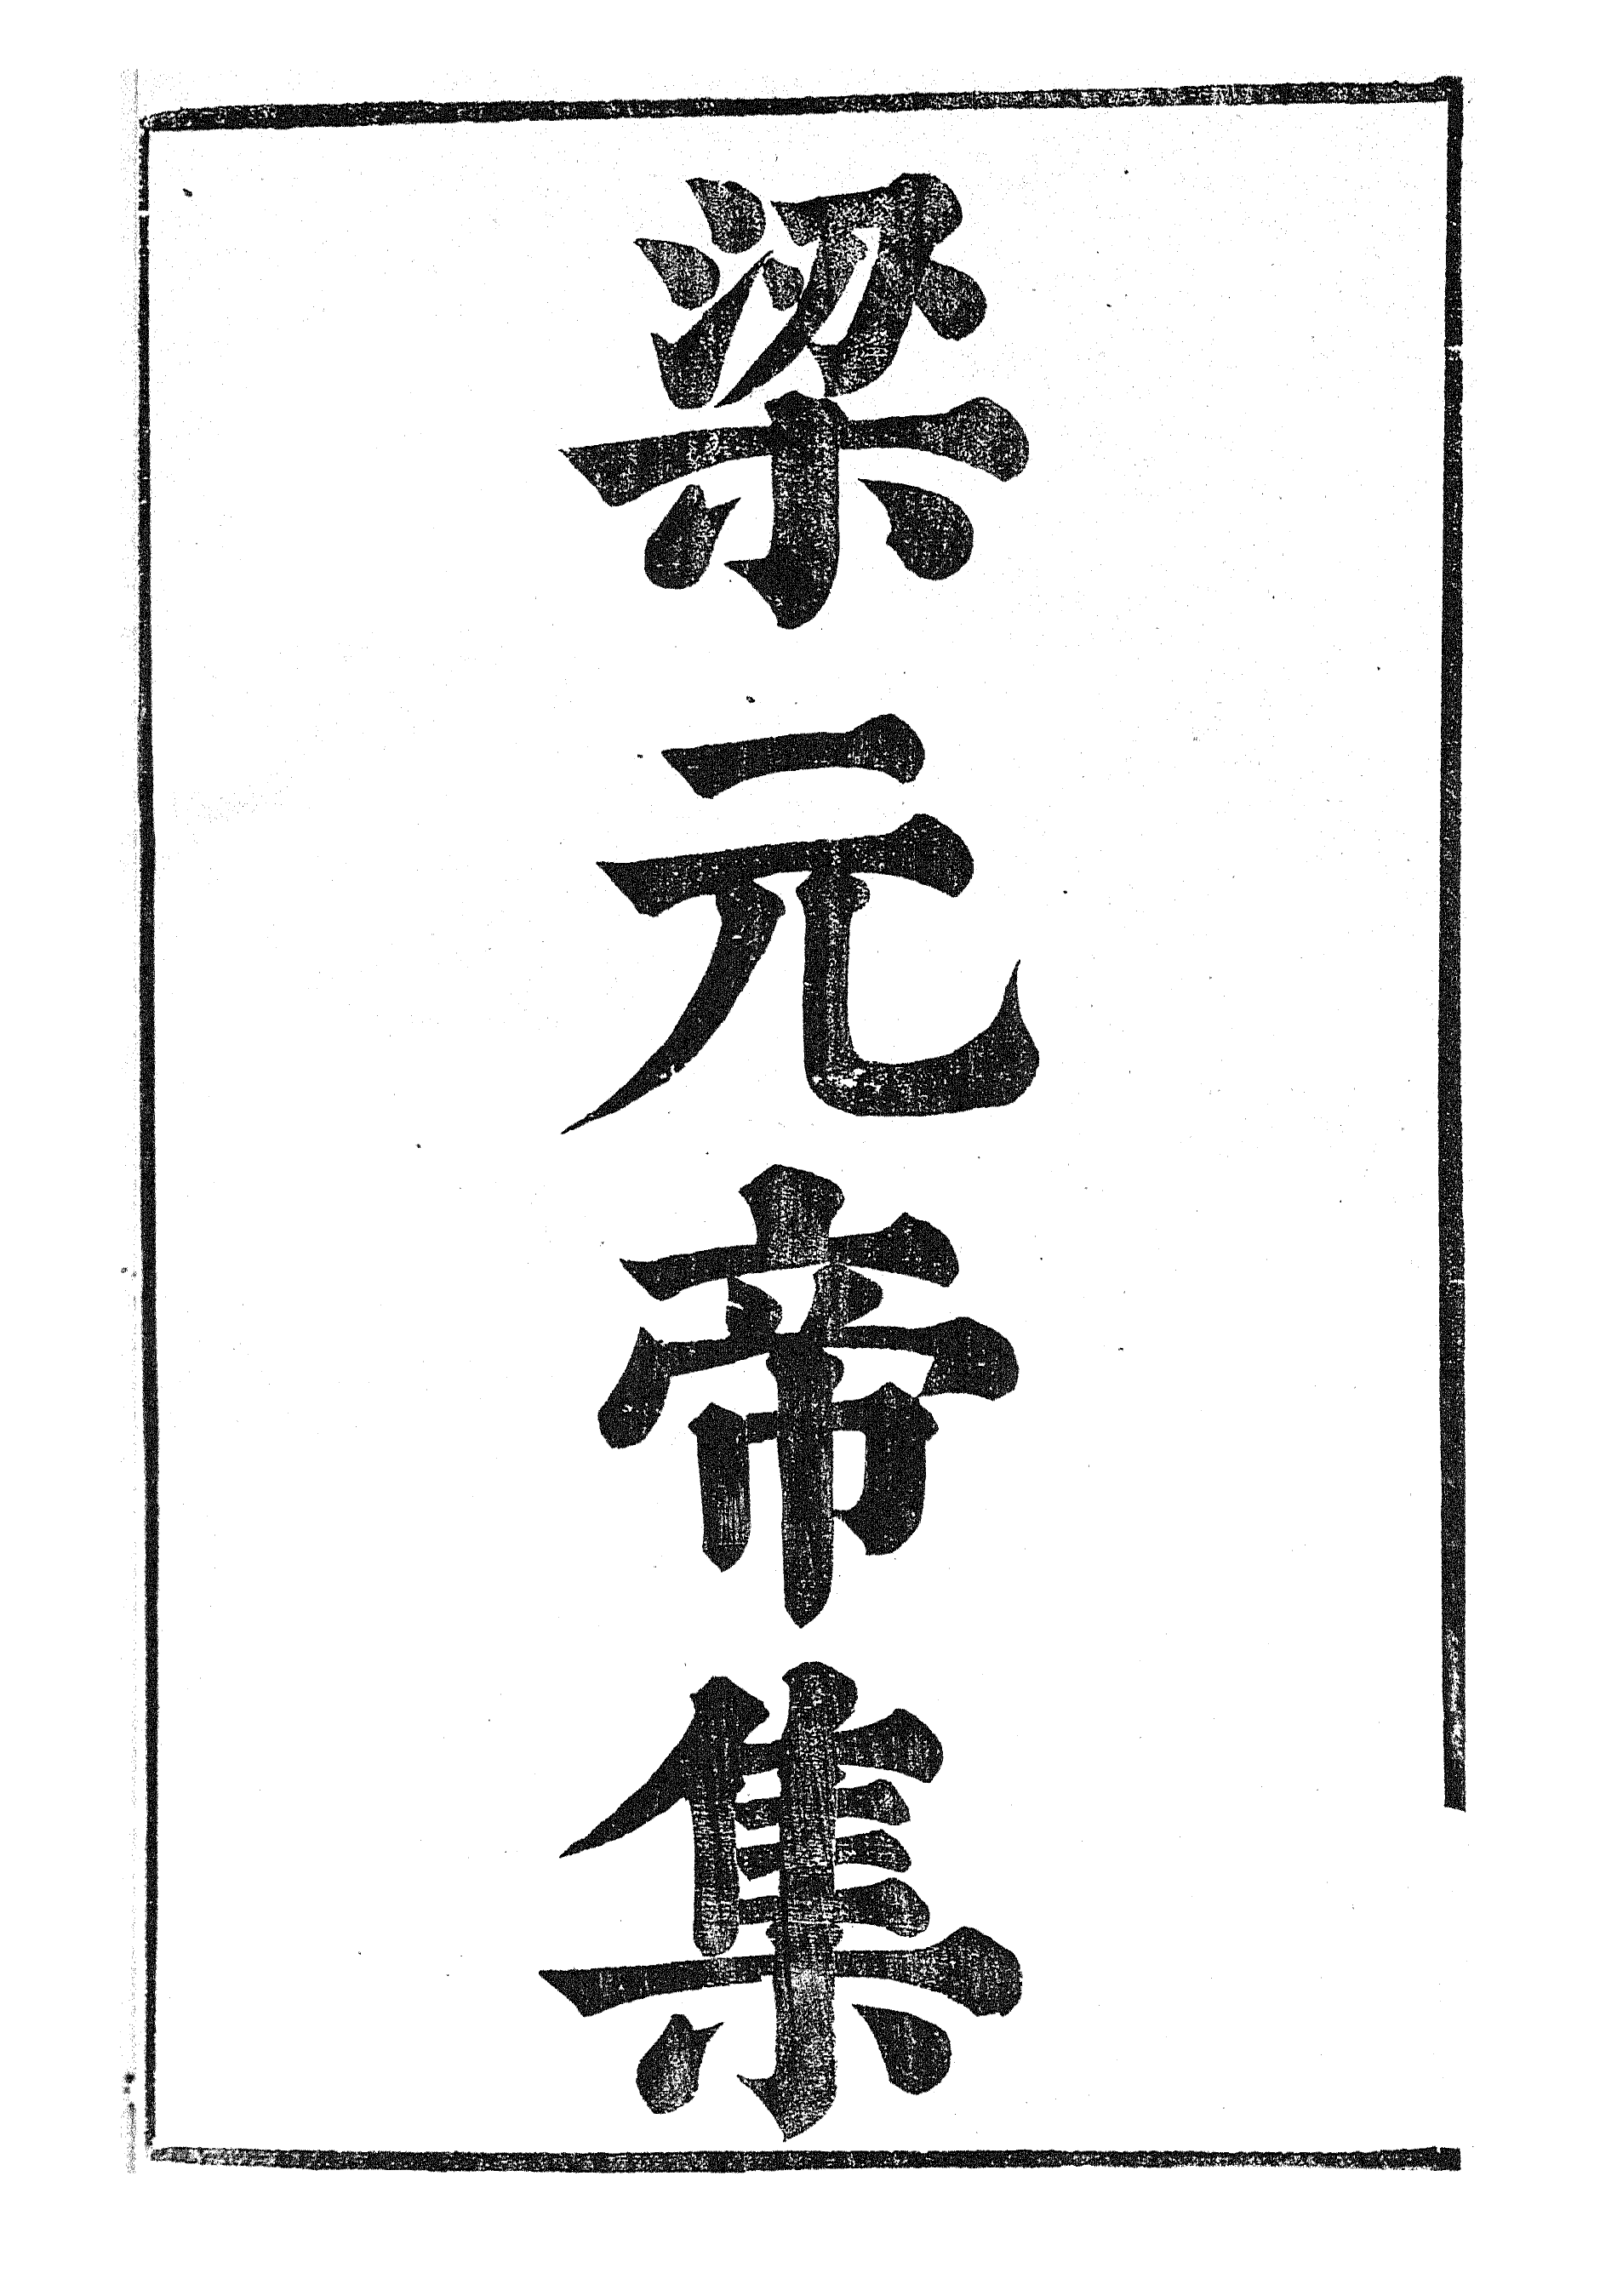 梁元帝集